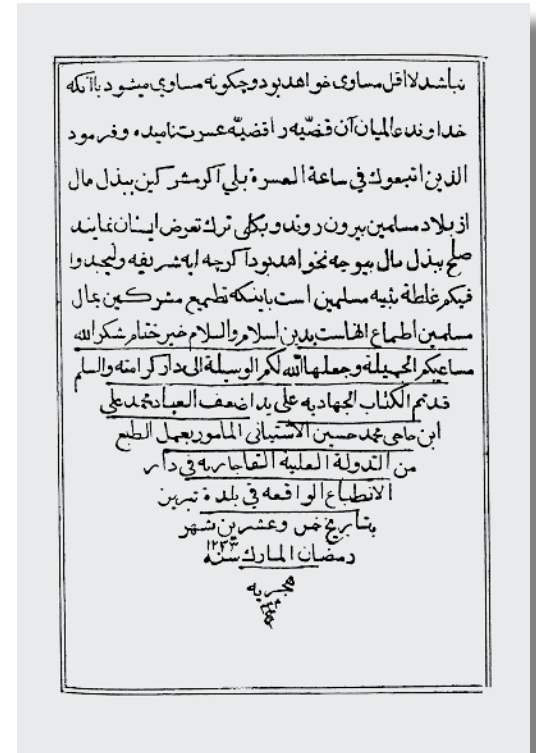 نباشد لااقل مساوی خواهد بود و چکونه مساوي میشود باآنکه
خداوند عالمیان آن قضیّه را قضیّه عسرت نامیده و فرمود
الذین اتبعوك في ساعة العسرة بلي اکر مشرکین ببذل مال
از بلاد مسلمین بیرون روند و بکلی ترك تعرض ایشان نمایند
صلح ببذل مال بیوجه نخواهد بود اکرچه ایه شریفه ولیجدوا
فیکم غلظة منبه مسلمین است باینکه تطمیع مشرکین بمال
مسلمین اطماع انهاست بدین اسلام والسلام خیر ختام شکر الله
مساعیکم الجمیلة وجعلها الله لکم الوسیلة الی دار کرامته والسلم
قد تم الکتاب الجهادیه علی ید اضعف العباد محمد علی
ابن حاجی محمد حسین الآشتیانی المأمور بعمل الطبع
من الدولة العلیة القاجاریه في دار
الانطباع الواقعه في بلدة تبریز
بتاریخ خمس وعشرین شهر
رمضان المبارك سنه ۱۲۳۳
هجریه